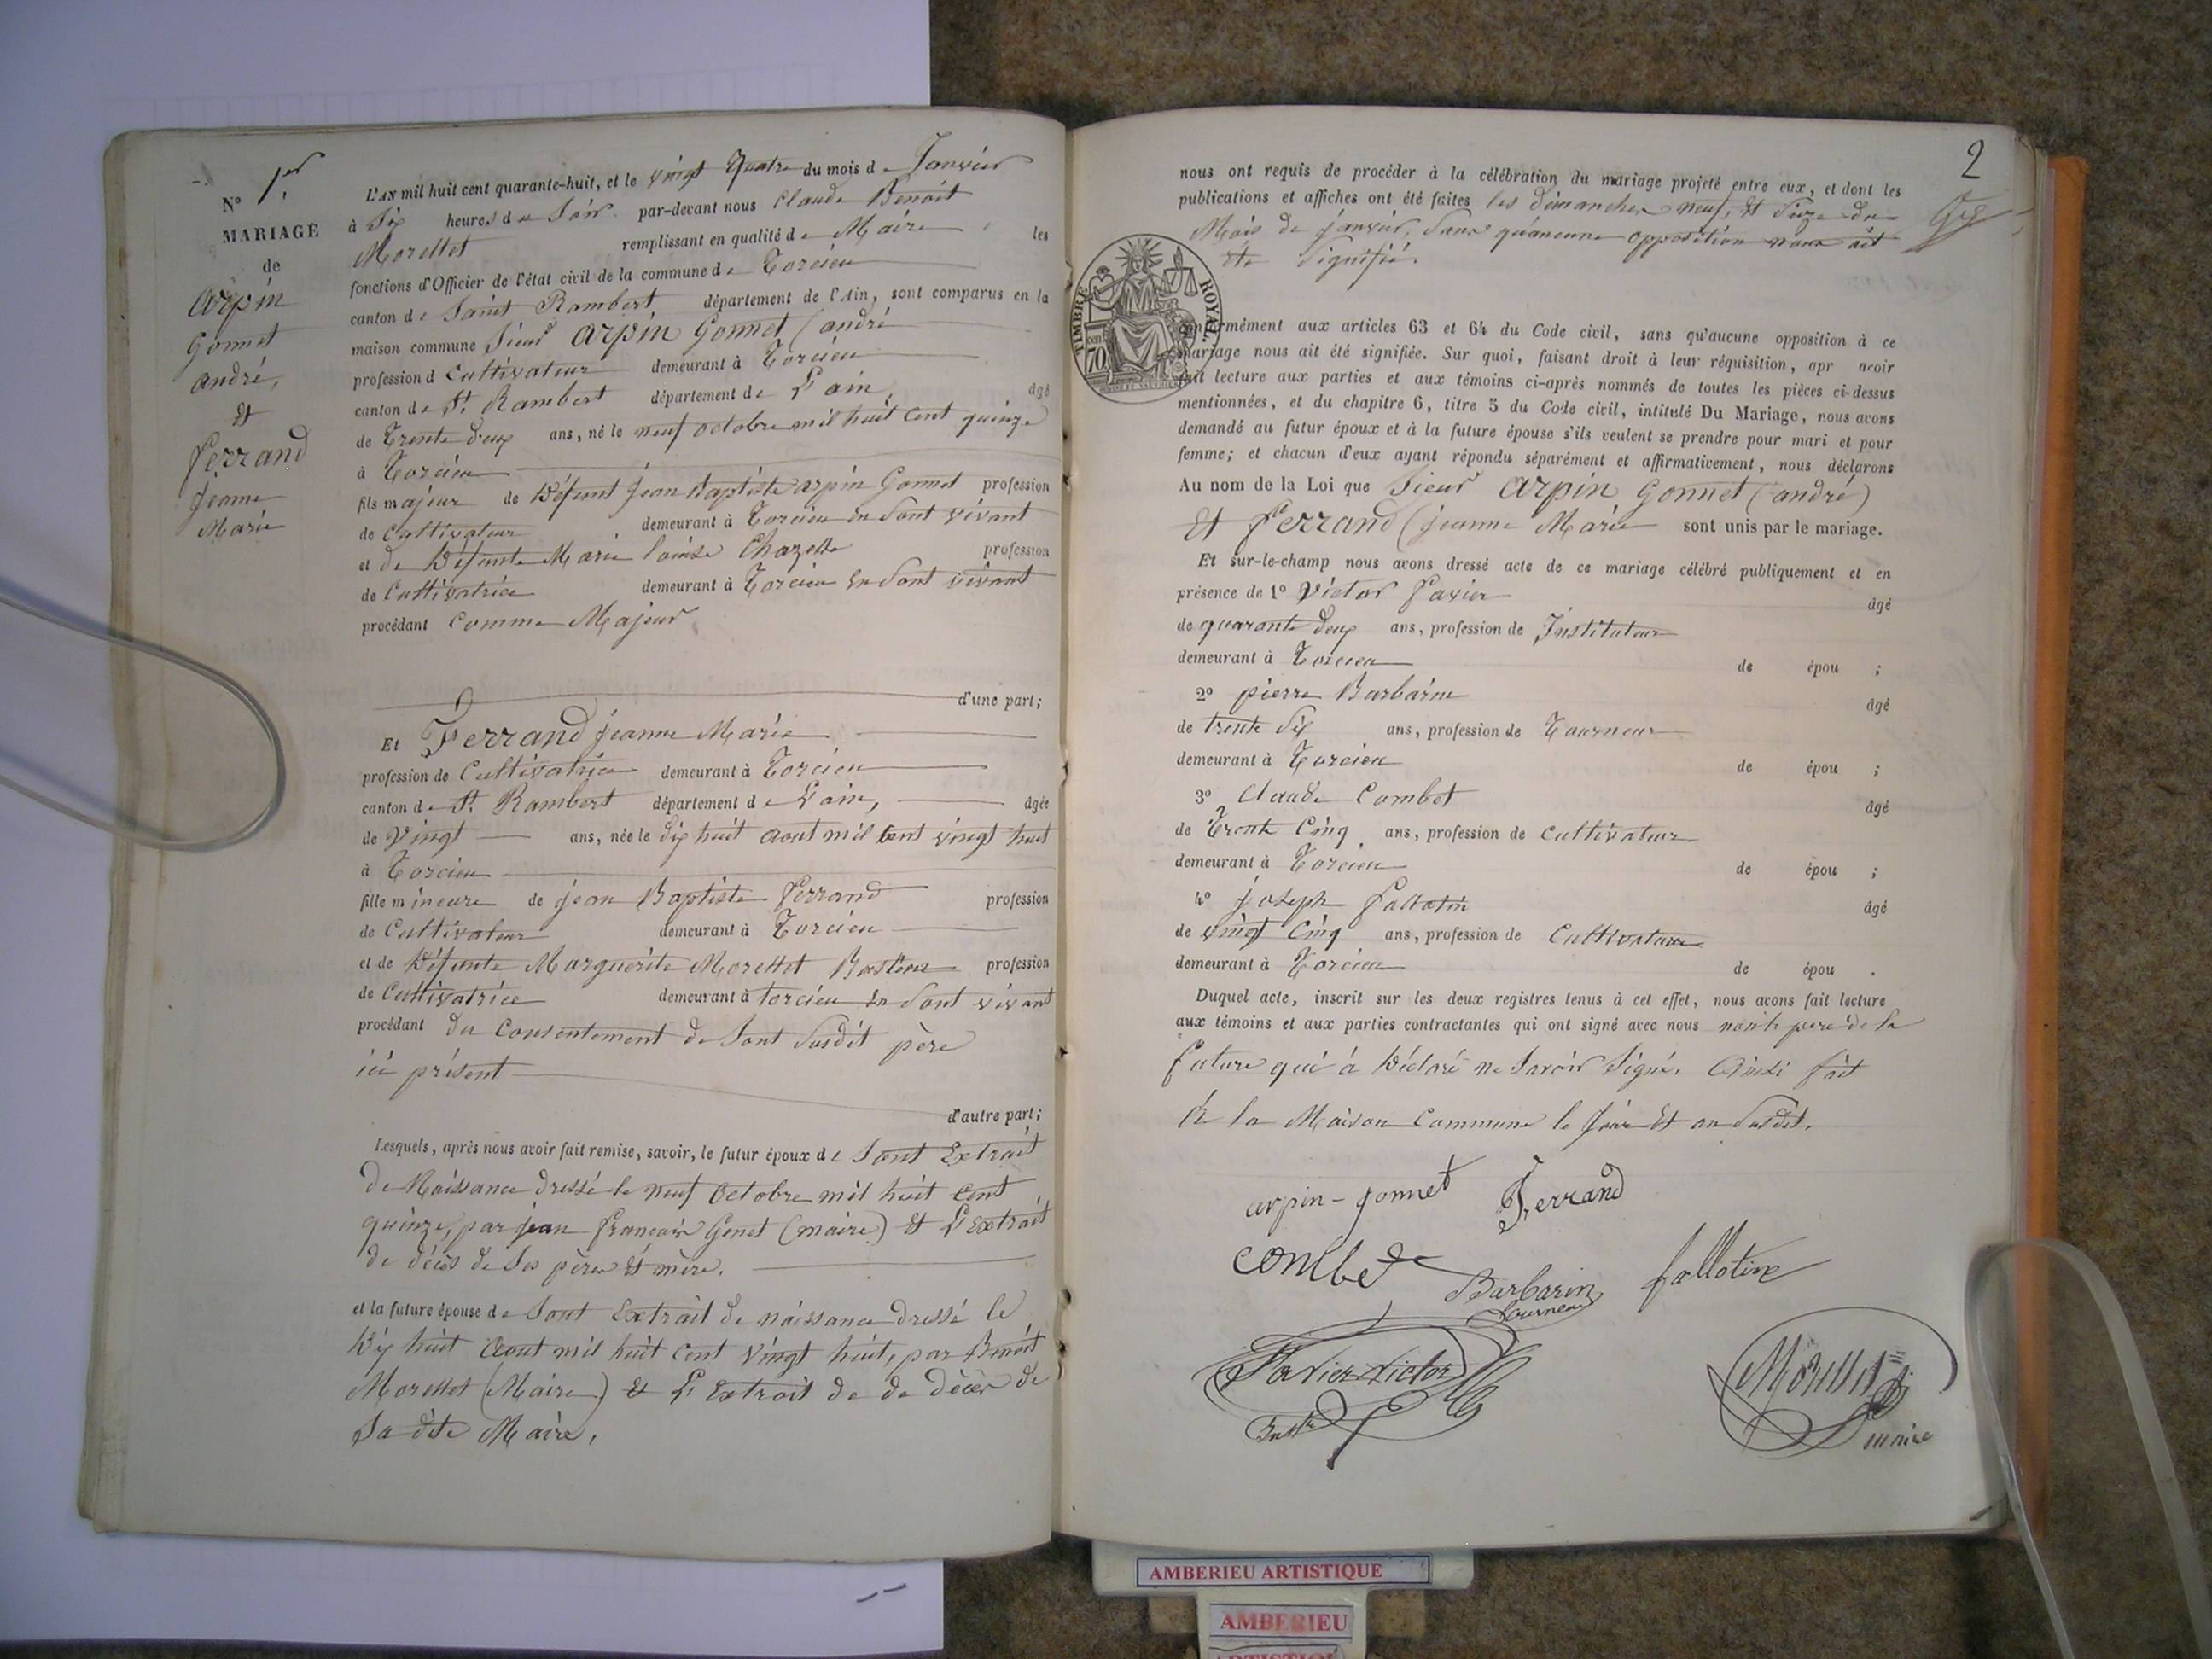 N° 1er
MARIAGE
de
Arpin
Gonnet
andré,
Et
Ferrand
Jeanne
Marie
L'AN mil huit cent quarante-huit, et le vingt Quatre du mois de Janvier
à Six heures du Soir par-devant nous Claude Benoit
Morettet remplissant en qualité de Maire, les
fonctions d'Officier de l'état civil de la commune de Torcieu
canton de Saint Rambert département de l'Ain, sont comparus en la
maison commune Sieur Arpin Gonnet (andré
profession d Cultivateur demeurant à Torcieu
canton de St. Rambert département de L'ain, âgé
de Trente deux ans, né le neuf octobre mil huit cent quinze
à Torcieu
fils majeur de Défunt Jean Baptiste arpin Gonnet profession
de Cultivateur demeurant à Torcieu En Sont vivant
et de Défunte Marie louise Chazette profession
de Cultivatrice demeurant à Torcieu En Sont vivant
procédant Comme Majeur
d'une part;
Et Ferrand jeanne Marie
profession de Cultivatrice demeurant à Torcieu
canton de St. Rambert département de L'ain, âgée
de Vingt ans, née le dix huit Aout mil Cent vingt huit
à Torcieu
fille mineure de jean Baptiste Ferrand profession
de Cultivateur demeurant à Torcieu
et de Défunte Marguerite Morettet profession
de Cultivatrice demeurant à torcieu En Sont vivant
procédant du Consentement de Sont Susdit père
ici présent
d'autre part;
Lesquels, après nous avoir fait remise, savoir, le futur époux de Sont Extrait
de Naissance dressé le neuf Octobre mil huit Cent
quinze, par jean françois Genet (maire) Et L'Extrait
de décès de Ses père Et mère.
et la future épouse de Sont Extrait de naissance dressé le
Dix huit Aout mil huit Cent Vingt huit, par Benoit
Morettet (Maire) Et L'Extrait de de décès de
Sa dite Maire,
2
nous ont requis de procéder à la célébration du mariage projeté entre eux, et dont les
publications et affiches ont été faites les dimanches neuf, Et Seize du
Mois de janvier, Sans qu'aucune opposition nous ait
été Signifié.
TIMBRE ROYAL.
70 cen
conformément aux articles 63 et 64 du Code civil, sans qu'aucune opposition à ce
mariage nous ait été signifiée. Sur quoi, faisant droit à leur réquisition, apr avoir
fait lecture aux parties et aux témoins ci-après nommés de toutes les pièces ci-dessus
mentionnées, et du chapitre 6, titre 5 du Code civil, intitulé Du Mariage, nous avons
demandé au futur époux et à la future épouse s'ils veulent se prendre pour mari et pour
femme; et chacun d'eux ayant répondu séparément et affirmativement, nous déclarons
Au nom de la Loi que Sieur Arpin Gonnet (andré)
Et Ferrand (jeanne Marie sont unis par le mariage.
Et sur-le-champ nous avons dressé acte de ce mariage célébré publiquement et en
présence de 1° Victor Favier âgé
de quarante deux ans, profession de Instituteur
demeurant à Torcieu de épou ;
2° pierre Barbarin âgé
de trente Six ans, profession de Tourneur
demeurant à Torcieu de épou ;
3° Claude Combet âgé
de Trente Cinq ans, profession de Cultivateur
demeurant à Torcieu de épou ;
4° joseph fallatin âgé
de vingt Cinq ans, profession de Cultivateur
demeurant à Torcieu de épou .
Duquel acte, inscrit sur les deux registres tenus à cet effet, nous avons fait lecture
aux témoins et aux parties contractantes qui ont signé avec nous non le père de la
future qui à Déclaré ne Savoir Signé. Ainsi fait
à la Maison Commune le jour Et an Susdit.
arpin-gonnet Ferrand
combet
Barbarin fallotin
Tourneur
Favier victor
Morettet
maire
AMBERIEU ARTISTIQUE
AMBERIEU
ARTISTIQUE